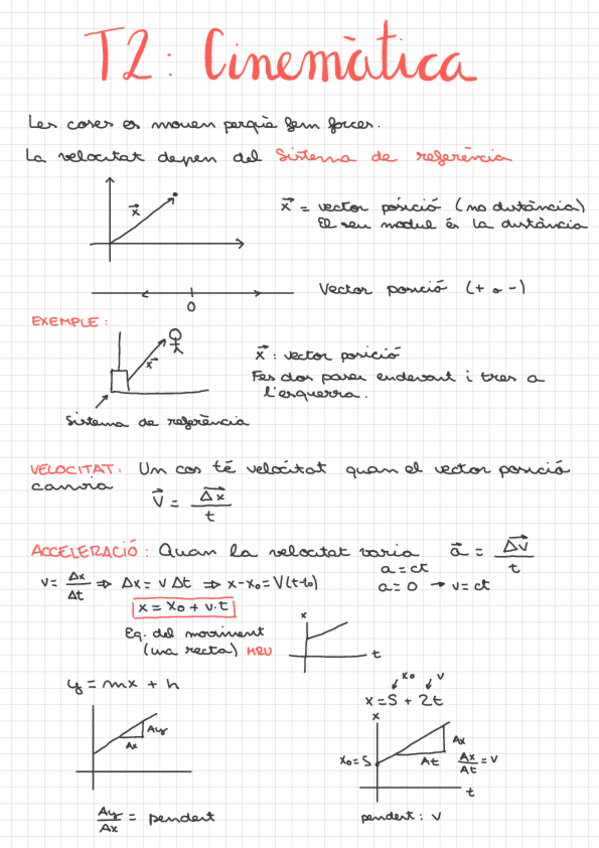 T2: Cinemàtica
Les coses es mouen perquè fem forces.
La velocitat depen del sistema de referència
x⃗
x⃗ = vector posició (no distància)
El seu modul és la distància
0
Vector posició (+ o -)
EXEMPLE:
x⃗
x⃗: vector posició
Fes dos pases endevant i tres a
l'esquerra.
Sistema de referència
VELOCITAT: Un cos té velocitat quan el vector posició
canvia
v⃗ = Δx⃗ / t
ACCELERACIÓ: Quan la velocitat varia a⃗ = Δv⃗ / t
a = ct
v = Δx/Δt ⇒ Δx = v Δt ⇒ x-x0 = V(t-t0) a = 0 → v = ct
x = x0 + v·t
Eq. del moviment
(una recta) MRU
x
t
y = mx + n
x0 v
x = 5 + 2t
Δy
Δx
x
x0 = 5
Δx
Δt
Δx/Δt = v
t
Δy/Δx = pendent
pendent: v